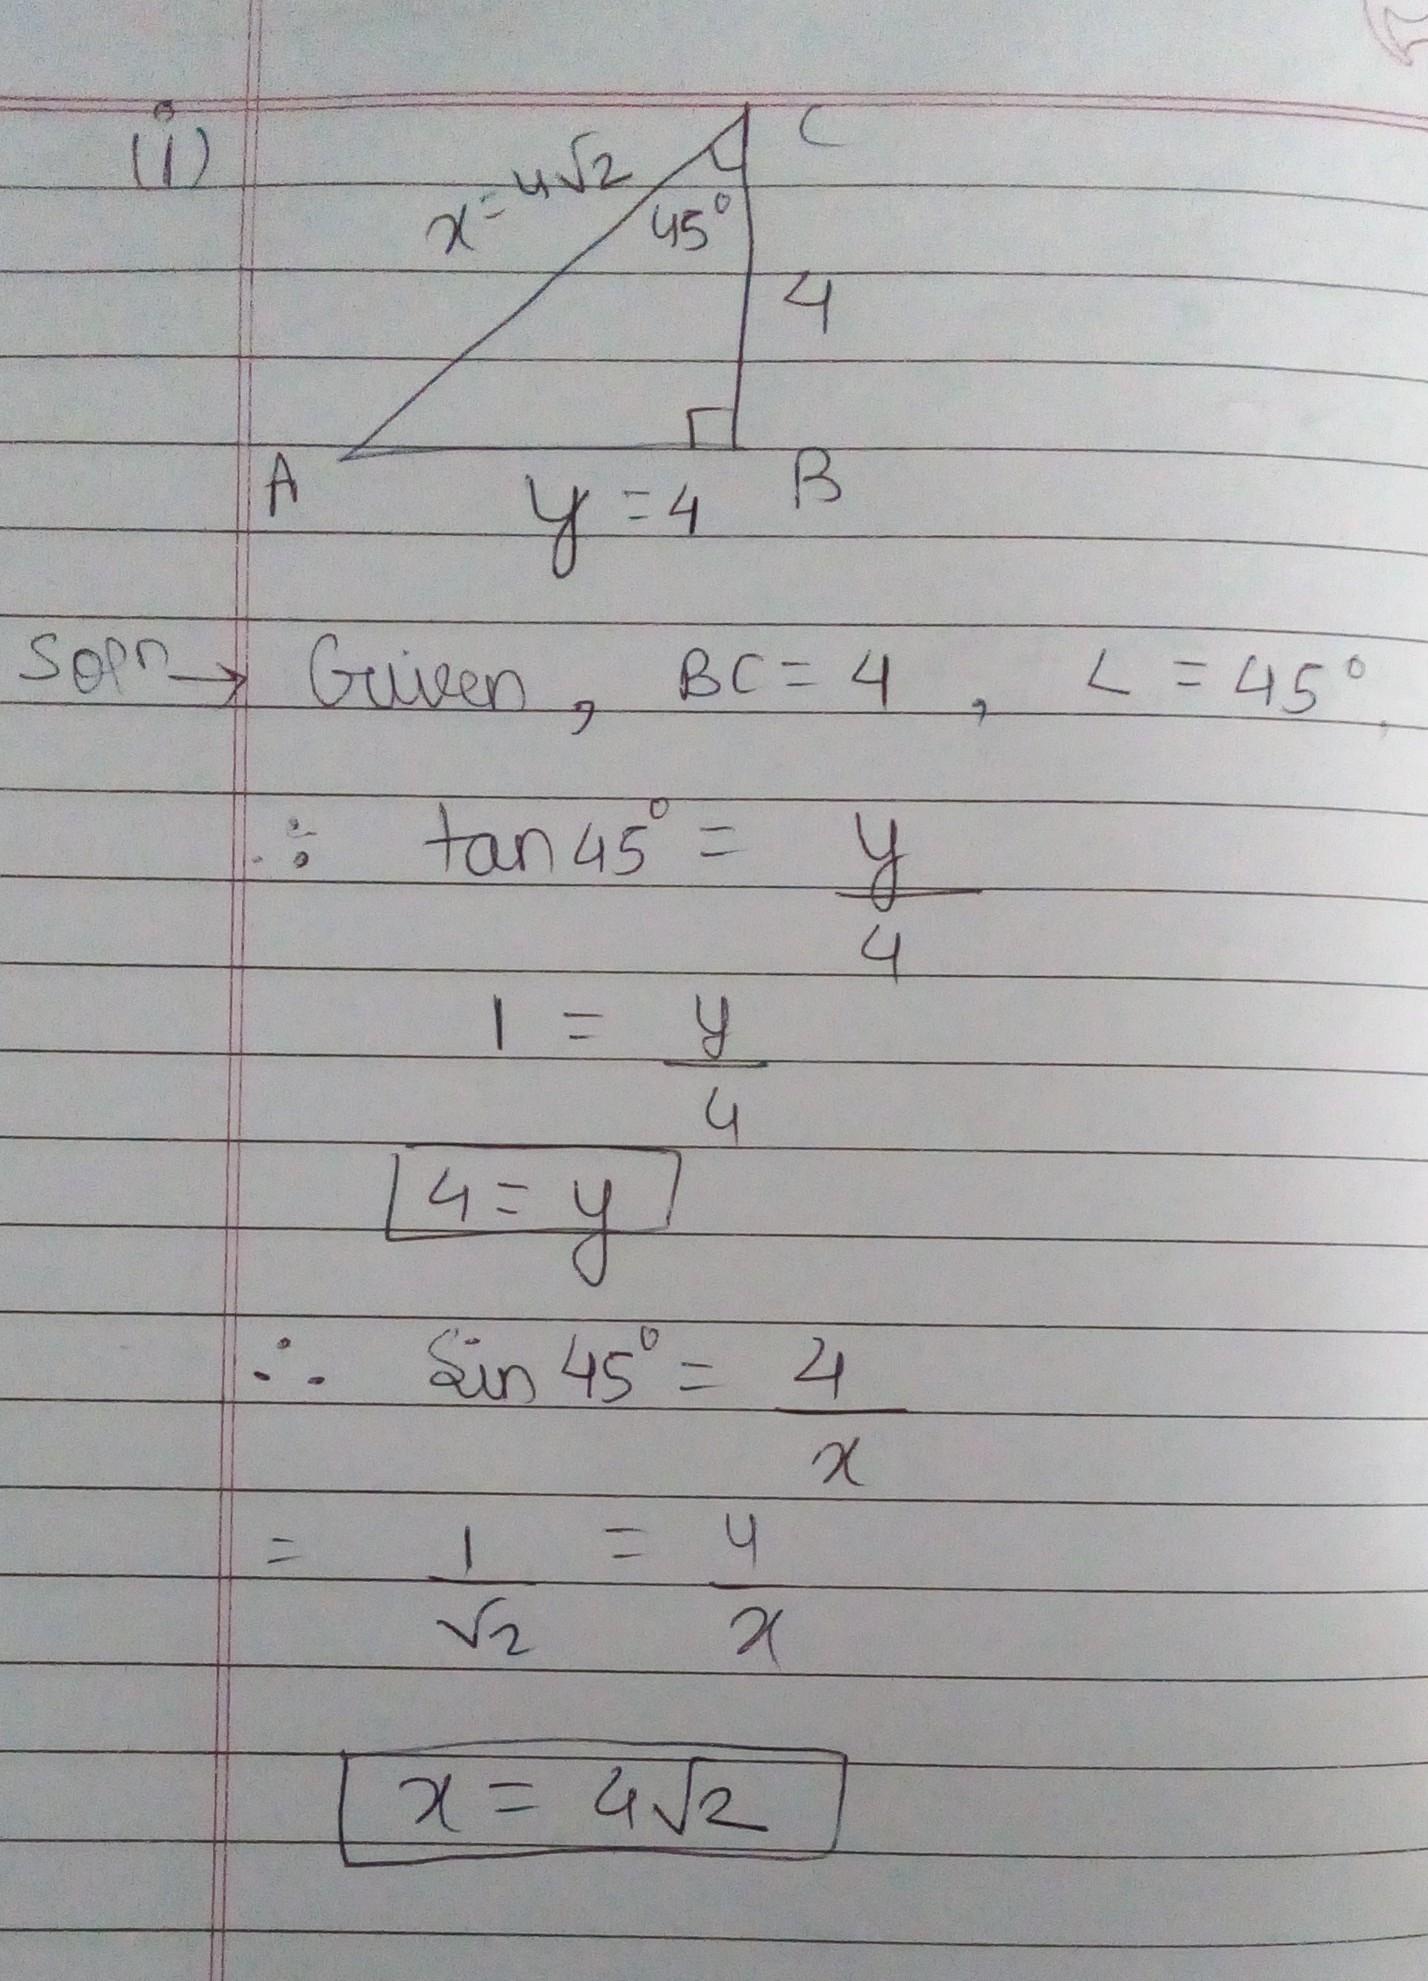 (i)
C
x = 4√2
45°
4
A
B
y = 4
Soln → Given, BC = 4, ∠ = 45°.
∴ tan 45° = y/4
1 = y/4
4 = y
∴ Sin 45° = 4/x
= 1/√2 = 4/x
x = 4√2